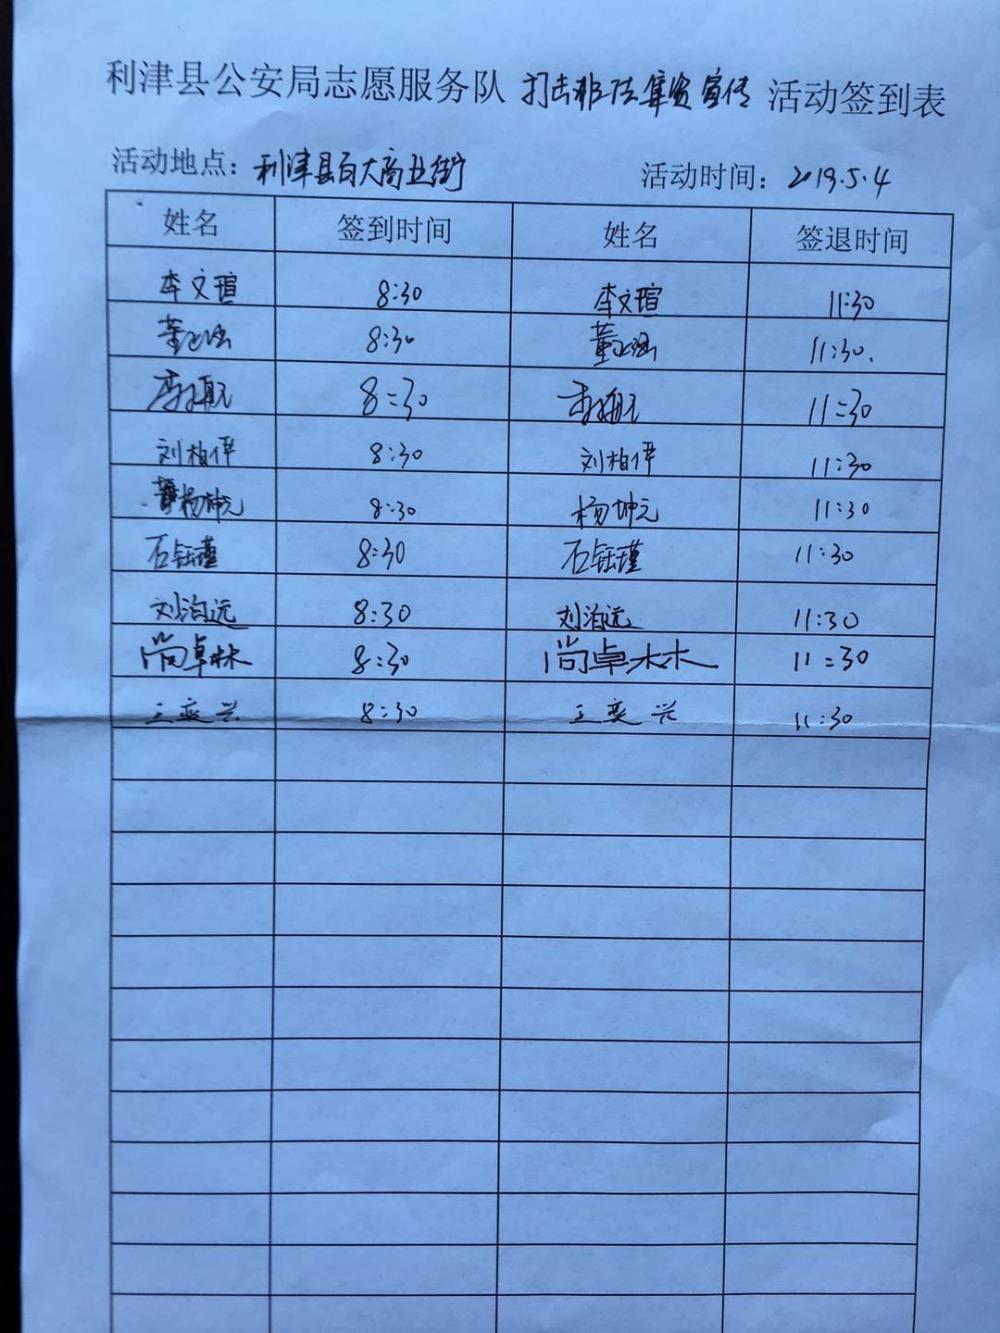 利津县公安局志愿服务队 打击非法集资宣传 活动签到表
活动地点：利津县百大商业街 活动时间：2019.5.4
姓名 签到时间 姓名 签退时间
李文瑄 8:30 李文瑄 11:30
董 8:30 董 11:30.
8:30 11:30
刘柏伴 8:30 刘柏伴 11:30
杨坤元 8:30 杨坤元 11:30
石钰瑾 8:30 石钰瑾 11:30
刘泊远 8:30 刘泊远 11:30
尚卓林 8:30 尚卓林 11:30
王奕兴 8:30 王奕兴 11:30